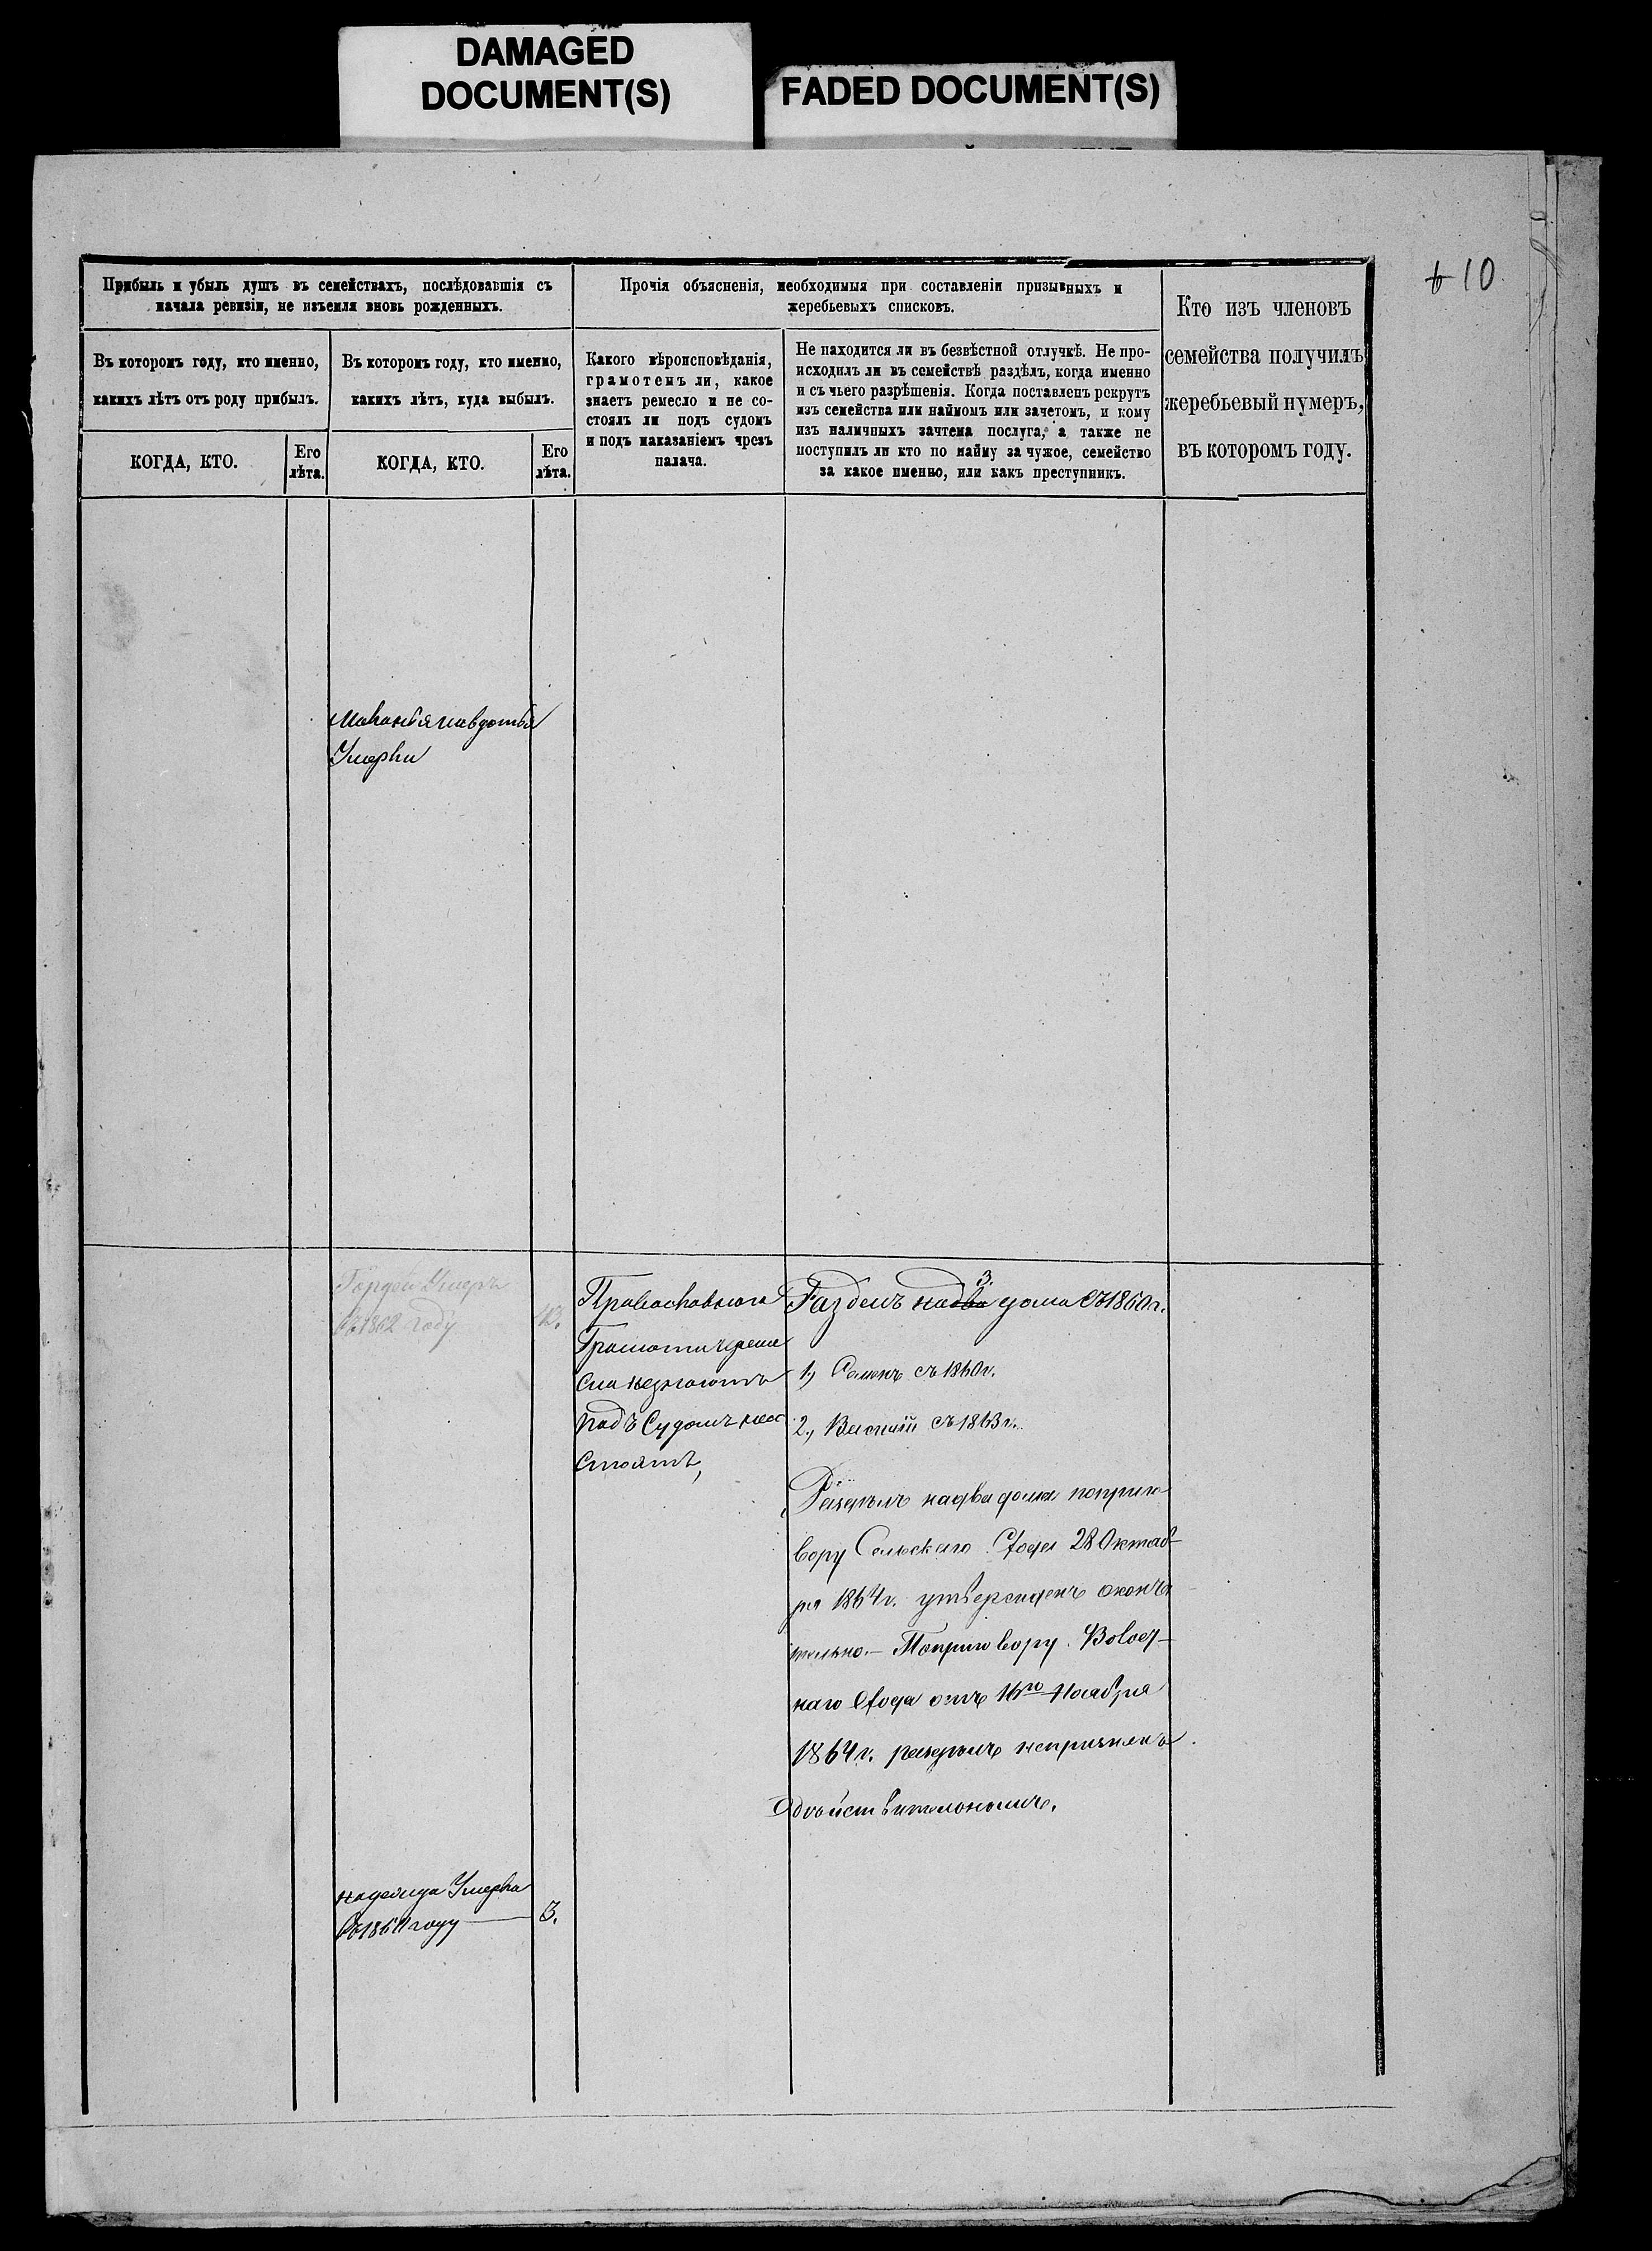 DAMAGED
DOCUMENT(S)
FADED DOCUMENT(S)
10
Прибыль и убыль душъ въ семействахъ, послѣдовавшія съ
начала ревизіи, не изъемля вновь рожденныхъ.
Въ которомъ году, кто именно,
какихъ лѣтъ отъ роду прибылъ.
КОГДА, КТО.
Его
лѣта.
Въ которомъ году, кто именно,
какихъ лѣтъ, куда выбылъ.
КОГДА, КТО.
Его
лѣта.
Прочія объясненія, необходимыя при составленіи призывныхъ и
жеребьевыхъ списковъ.
Какого вѣроисповѣданія,
грамотенъ ли, какое
знаетъ ремесло и не со-
стоялъ ли подъ судомъ
и подъ наказаніемъ чрезъ
палача.
Не находится ли въ безвѣстной отлучкѣ. Не про-
исходилъ ли въ семействѣ раздѣлъ, когда именно
и съ чьего разрѣшенія. Когда поставленъ рекрутъ
изъ семейства или наймомъ или зачетомъ, и кому
изъ наличныхъ зачтена послуга, а также не
поступилъ ли кто по найму за чужое, семейство
за какое именно, или какъ преступникъ.
Кто изъ членовъ
семейства получилъ
жеребьевый нумеръ,
въ которомъ году.
Умерли
Гордей Умеръ
въ 1862 году
42.
Православнаго
Грамоти и реме
сла незнаютъ
подъ Судомъ несо
стоятъ,
3.
Разделъ на два дома съ 1860 г.
1, Семенъ съ 1860 г.
2, Василій съ 1863 г.
Раздѣлъ на два дома по приго
вору Сельскаго Схода 28 Октяб-
ря 1864 г. утвержденъ оконча
тельно. – По приговору Волост-
наго Схода отъ 16го Ноября
1864 г. раздѣлъ непризнанъ
действительнымъ.
Надежда Умерла
въ 1861 году — 3.